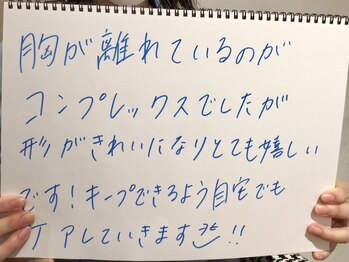 胸が離れているのが
コンプレックスでしたが
形がきれいになりとても嬉しい
です!キープできるよう自宅でも
ケアしていきます!!